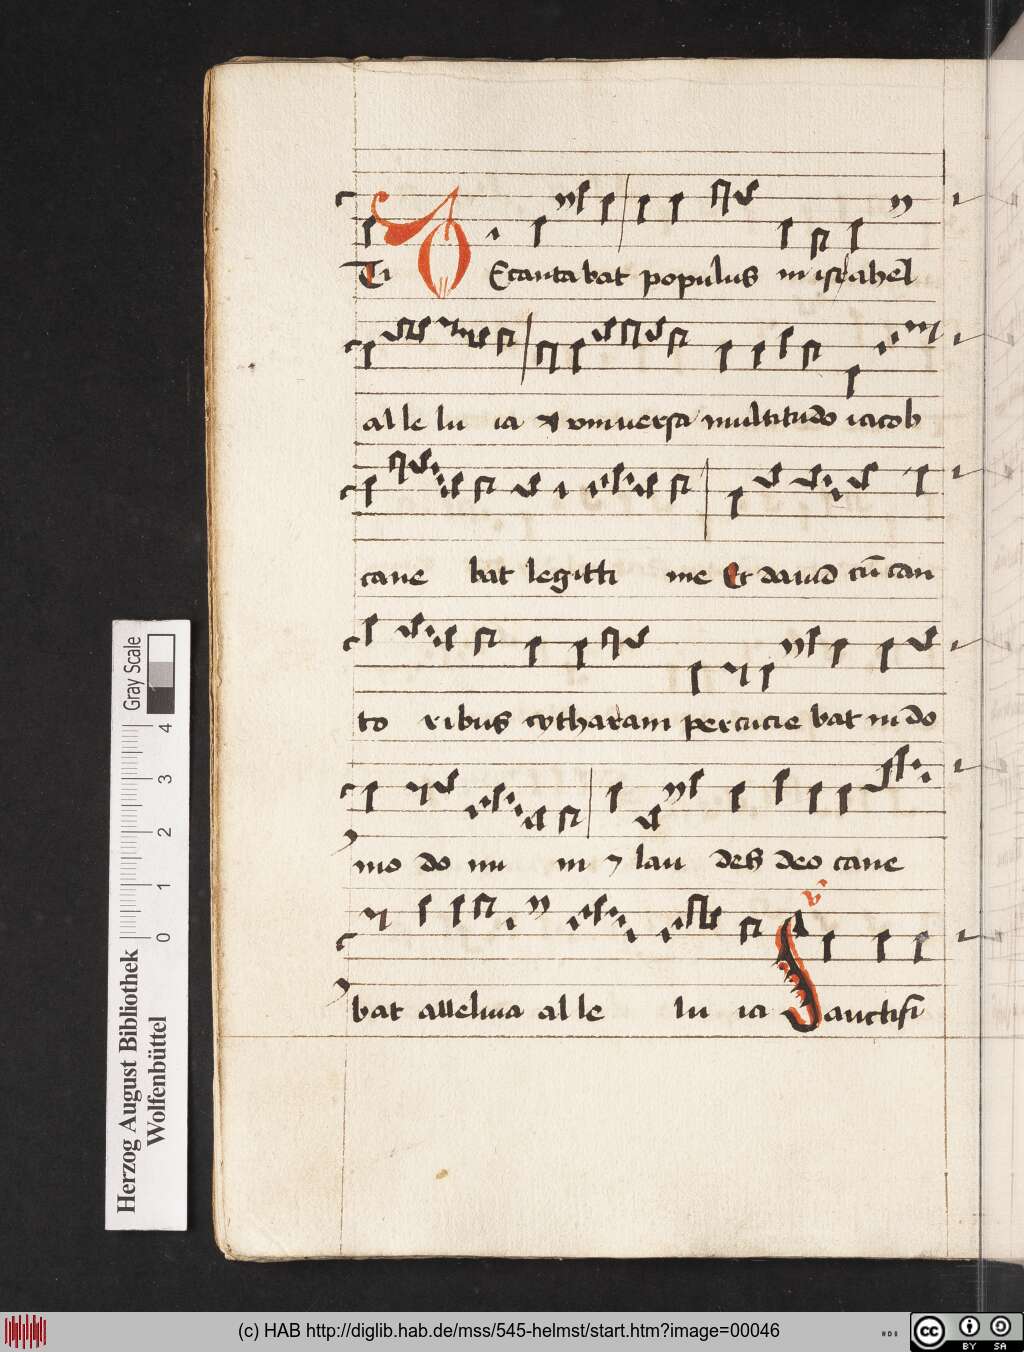 Ti Decantabat populus in israhel
al le lu ia et vniuersa multitudo iacob
cane bat legitti me Et dauid cū can
to ribus cytharam percucie bat in do
mo do mi ni ⁊ lau des deo cane
bat alleluia al le lu ia Sanctifi
Gray Scale
0 1 2 3 4
Herzog August Bibliothek
Wolfenbüttel
(c) HAB http://diglib.hab.de/mss/545-helmst/start.htm?image=00046
cc BY SA